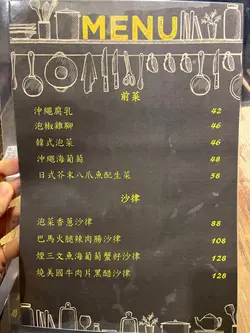 MENU
前菜
沖繩腐乳 42
泡椒雞腳 46
韓式泡菜 46
沖繩海葡萄 48
日式芥末八爪魚配生菜 58
沙律
泡菜香蔥沙律 88
巴馬火腿辣肉腸沙律 108
煙三文魚海葡萄蟹籽沙律 128
燒美國牛肉片黑醋沙律 128